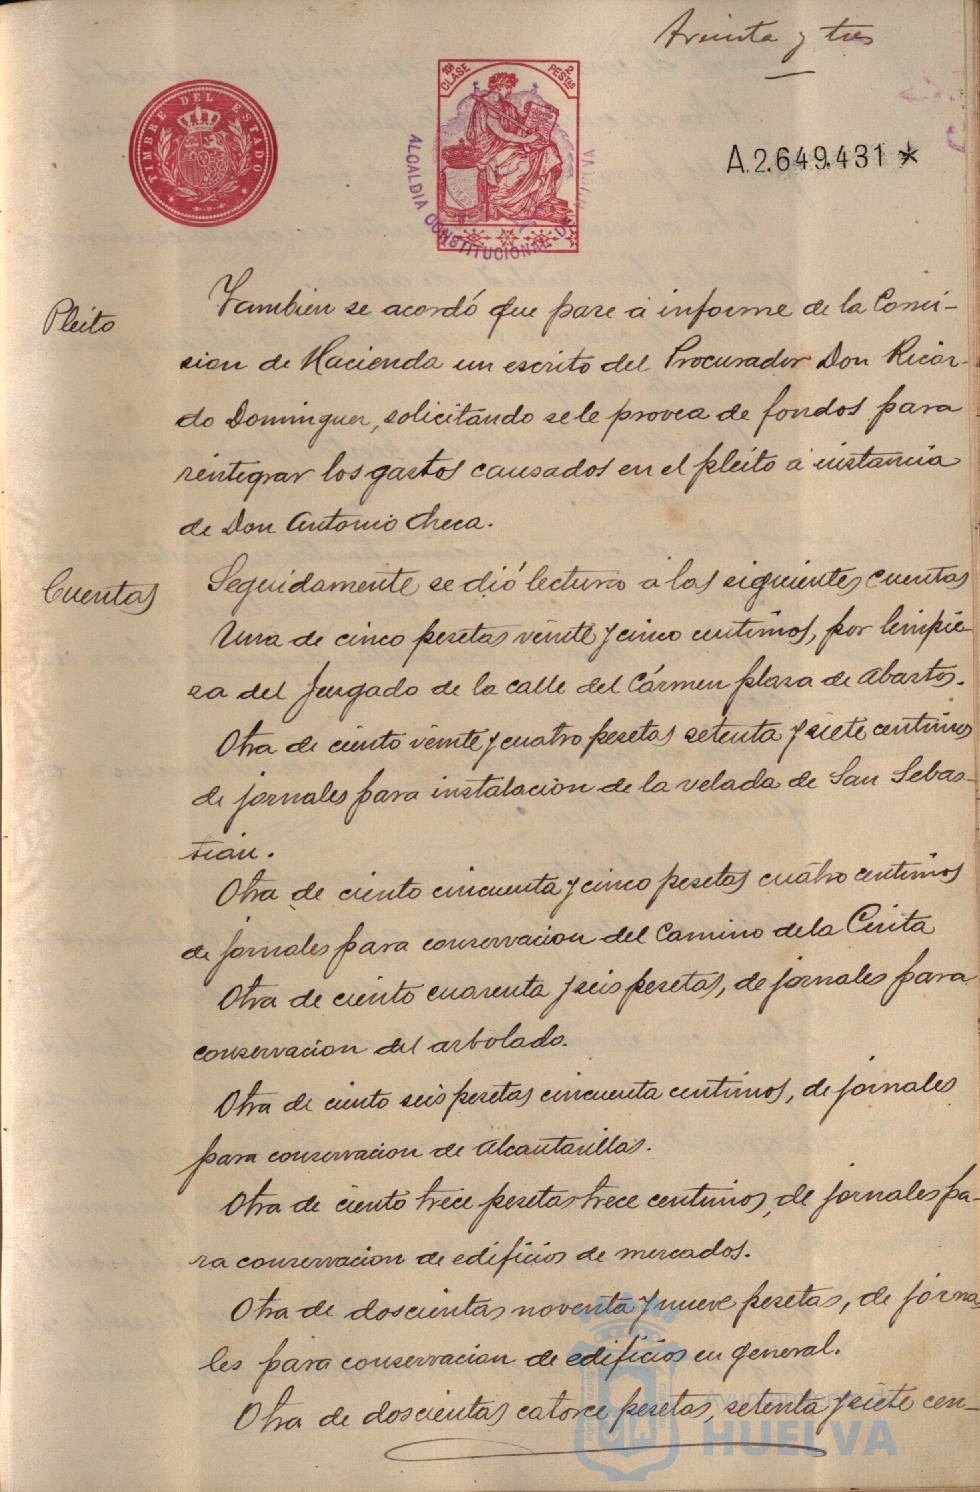 treinta y tres
TIMBRE DEL ESTADO
10ª CLASE 2 PESTAS
ALCALDIA CONSTITUCIONAL
A.2.649.431 *
Pleito
Tambien se acordó que pase á informe de la Comi-
sion de Hacienda un escrito del Procurador Don Ricar-
do Dominguez, solicitando se le provea de fondos para
reintegrar los gastos causados en el pleito á instancia
de Don Antonio Checa.
Cuentas
Seguidamente se dió lectura á las siguientes cuentas
Una de cinco pesetas veinte y cinco centimos, por limpie-
za del Juzgado de la calle del Cármen plaza de Abastos.
Otra de ciento veinte y cuatro pesetas setenta y siete centimos
de jornales para instalacion de la velada de San Sebas-
tian.
Otra de ciento cincuenta y cinco pesetas cuatro centimos
de jornales para conservacion del Camino de la Cinta
Otra de ciento cuarenta y seis pesetas, de jornales para
conservacion del arbolado.
Otra de ciento seis pesetas cincuenta centimos, de jornales
para conservacion de Alcantarillas.
Otra de ciento trece pesetas trece centimos, de jornales pa-
ra conservacion de edificios de mercados.
Otra de doscientas noventa y nueve pesetas, de jorna
les para conservacion de edificios en general.
Otra de doscientas catorce pesetas, setenta y siete cen-
Ayuntamiento de
HUELVA